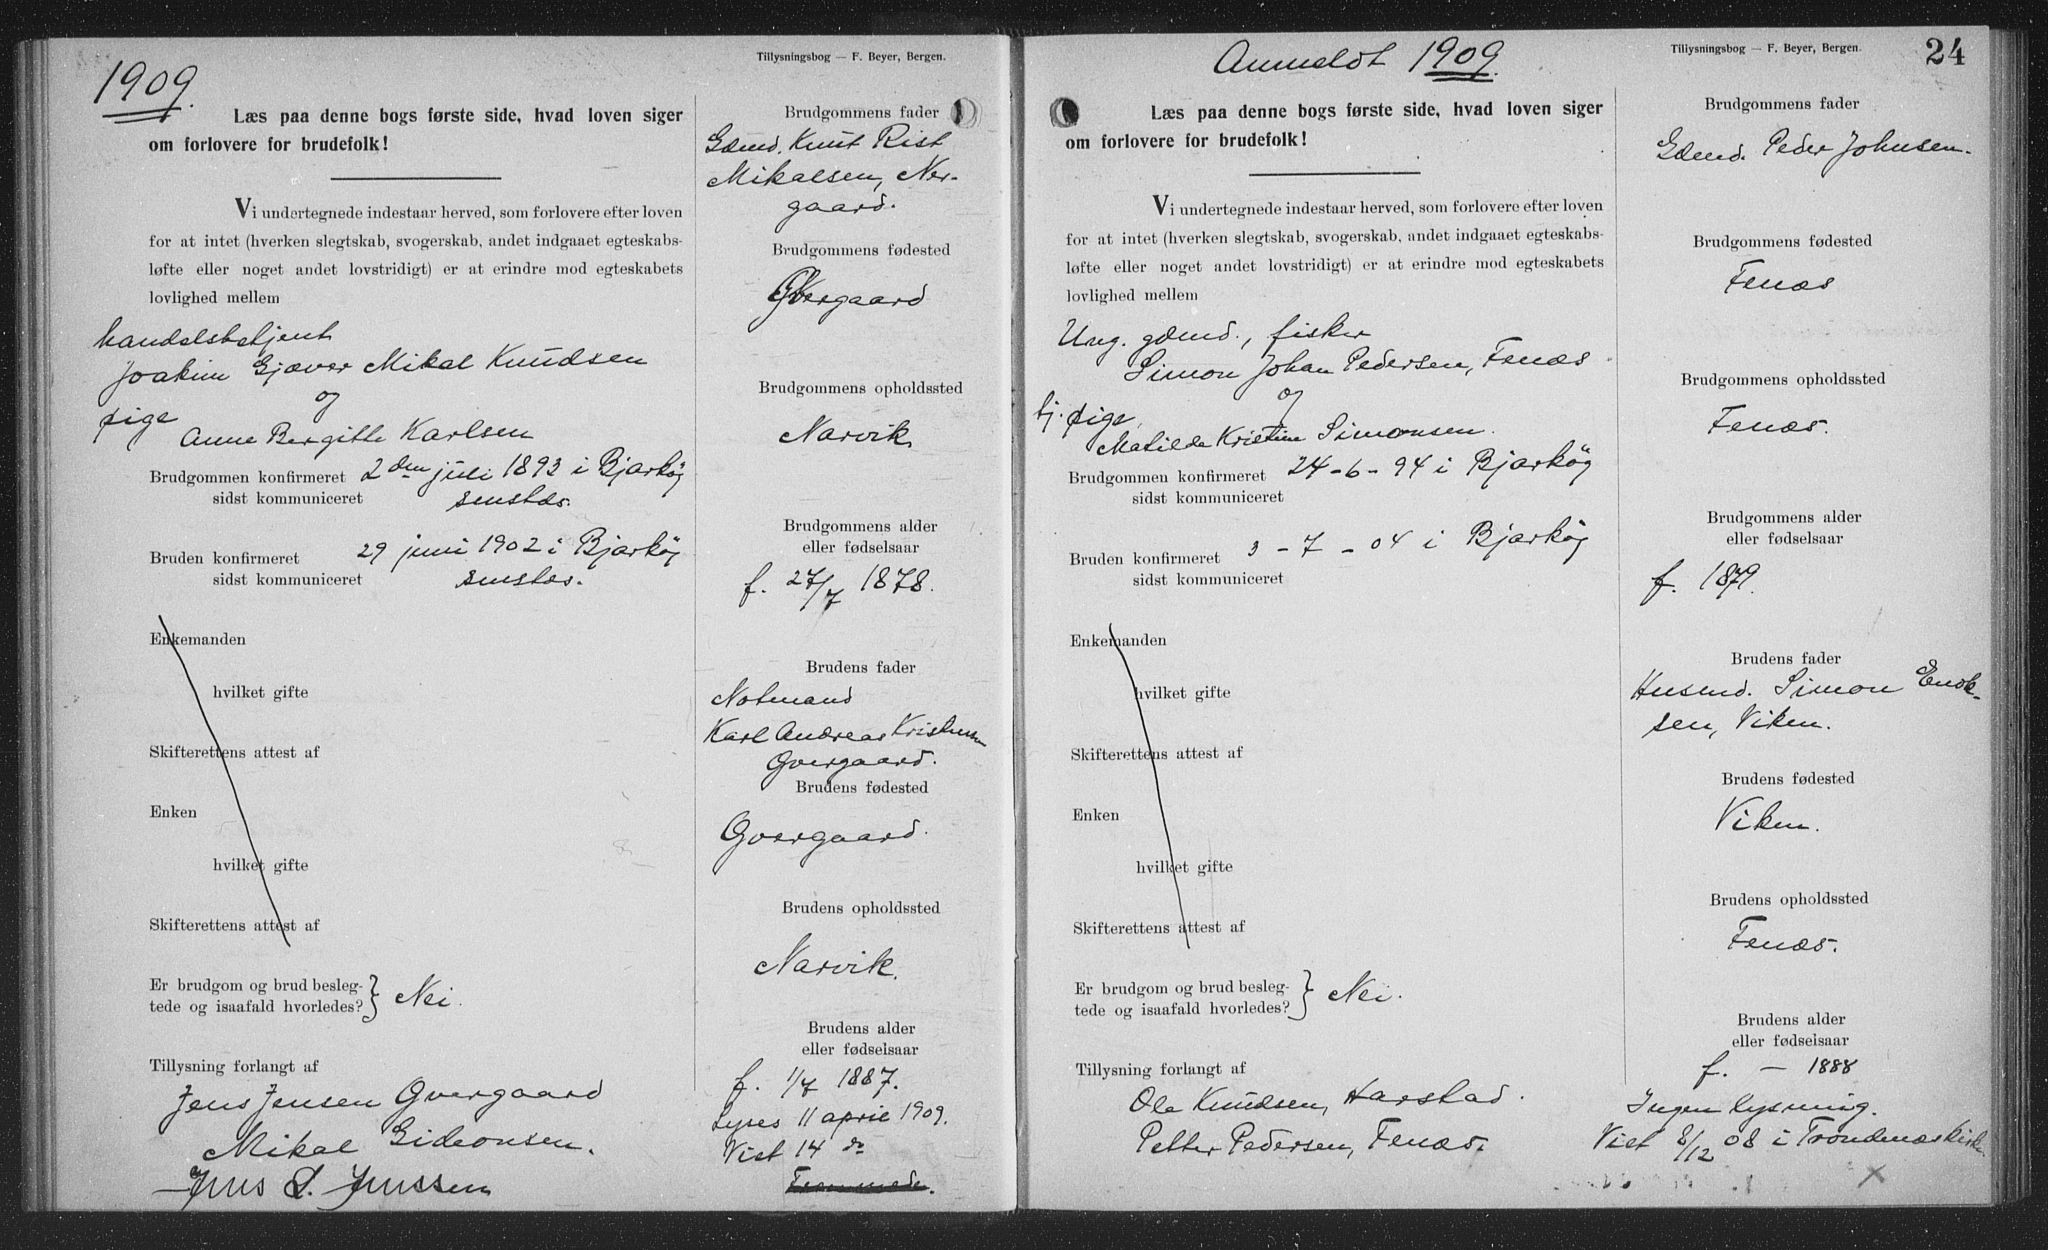 1909.
Tillysningsbog — F. Beyer, Bergen.
Læs paa denne bogs første side, hvad loven siger
om forlovere for brudefolk!
Vi undertegnede indestaar herved, som forlovere efter loven
for at intet (hverken slegtskab, svogerskab, andet indgaaet egteskabs-
løfte eller noget andet lovstridigt) er at erindre mod egteskabets
lovlighed mellem
handelsbetjent
Joakim Gjæver Mikal Knudsen
og
pige
Anne Bergitte Karlsen
Brudgommen konfirmeret 2den juli 1893 i Bjarkøy
sidst kommuniceret senstes.
Bruden konfirmeret 29 juni 1902 i Bjarkøy
sidst kommuniceret senstes.
Enkemanden
hvilket gifte
Skifterettens attest af
Enken
hvilket gifte
Skifterettens attest af
Er brudgom og brud besleg-
tede og isaafald hvorledes? } Nei.
Tillysning forlangt af
Jens Jensen Øvergaard
Mikal Gideonsen.
Jens L. Jenssen
Brudgommens fader
Gdmd. Knut Rist
Mikalsen, Ner-
gaard.
Brudgommens fødested
Øvergaard
Brudgommens opholdssted
Narvik
Brudgommens alder
eller fødselsaar
f. 27/7 1878.
Brudens fader
Notmand
Karl Andreas Kristensen
Øvergaard.
Brudens fødested
Øvergaard.
Brudens opholdssted
Narvik.
Brudens alder
eller fødselsaar
f. 1/7 1887.
Lyses 11 april 1909.
Viet 14 do
Anmeldt 1909.
Tillysningsbog — F. Beyer, Bergen.
24
Læs paa denne bogs første side, hvad loven siger
om forlovere for brudefolk!
Vi undertegnede indestaar herved, som forlovere efter loven
for at intet (hverken slegtskab, svogerskab, andet indgaaet egteskabs-
løfte eller noget andet lovstridigt) er at erindre mod egteskabets
lovlighed mellem
Ung. gdmd., fisker
Simon Johan Pedersen, Fenæs
og
tj. pige,
Matilde Kristine Simonsen.
Brudgommen konfirmeret 24-6-94 i Bjarkøy
sidst kommuniceret
Bruden konfirmeret 3-7-04 i Bjarkøy
sidst kommuniceret
Enkemanden
hvilket gifte
Skifterettens attest af
Enken
hvilket gifte
Skifterettens attest af
Er brudgom og brud besleg-
tede og isaafald hvorledes? } Nei.
Tillysning forlangt af
Ole Knudsen, Harstad.
Petter Pedersen, Fenæs.
Brudgommens fader
Gdmd. Peder Johnsen.
Brudgommens fødested
Fenæs
Brudgommens opholdssted
Fenæs.
Brudgommens alder
eller fødselsaar
f. 1879.
Brudens fader
Husmd. Simon Enok-
sen, Viken.
Brudens fødested
Viken.
Brudens opholdssted
Fenæs.
Brudens alder
eller fødselsaar
f. — 1888
Ingen lysning.
Viet 8/12 08 i Trondenæs kirke
X